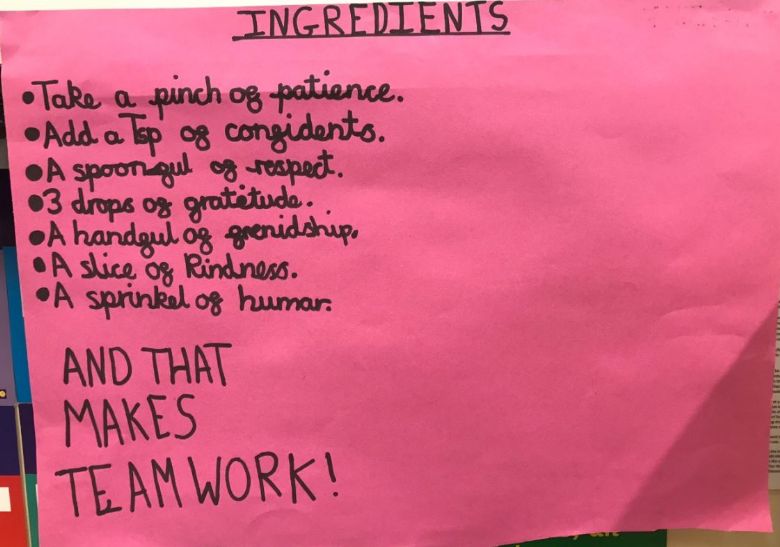 INGREDIENTS
•Take a pinch of patience.
•Add a Tsp of confidents.
•A spoonful of respect.
•3 drops of gratetude.
•A handful of frenidship.
•A slice of Kindness.
•A sprinkel of humar.
AND THAT
MAKES
TEAMWORK!